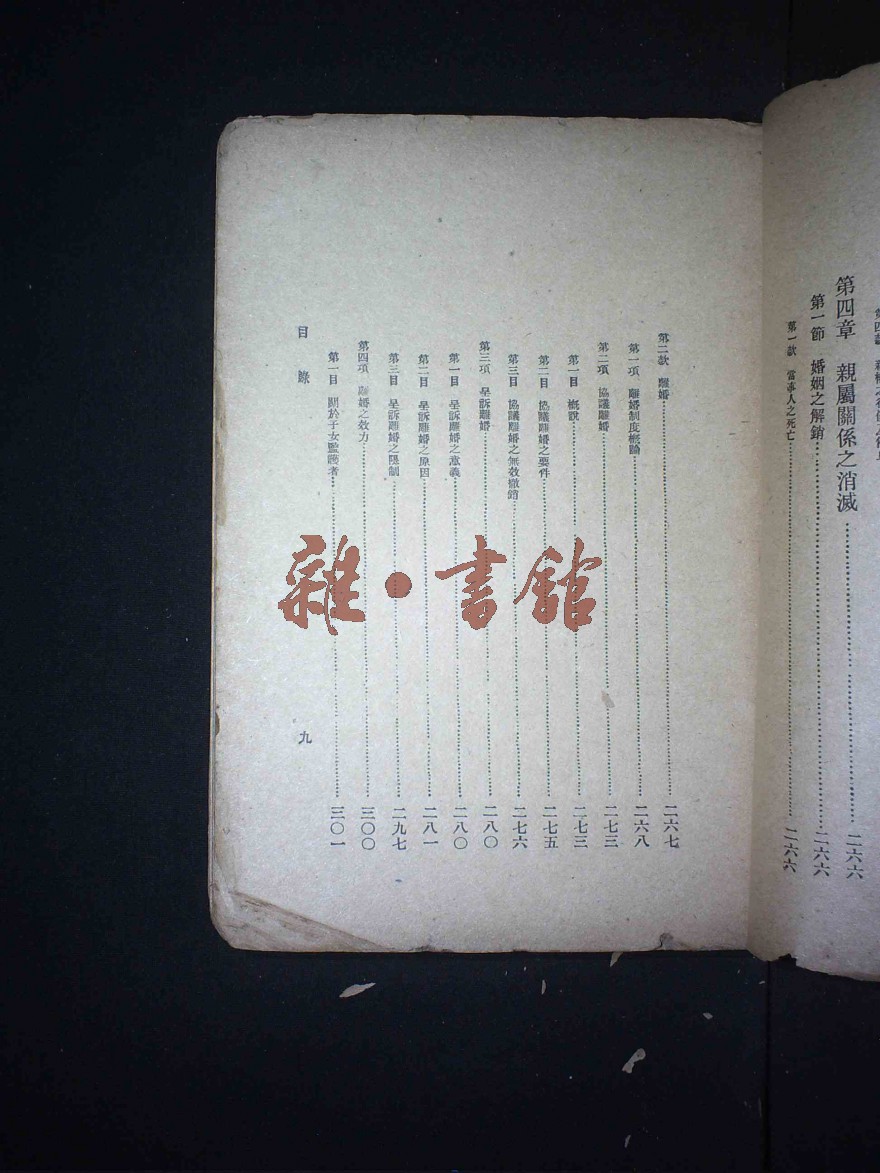 第四章　親屬關係之消滅……二六六
第一節　婚姻之解銷……二六六
第一款　當事人之死亡……二六六
第二款　離婚……二六七
第一項　離婚制度概論……二六八
第二項　協議離婚……二七三
第一目　概說……二七三
第二目　協議離婚之要件……二七五
第三目　協議離婚之無效撤銷……二七六
第三項　呈訴離婚……二八〇
第一目　呈訴離婚之意義……二八〇
第二目　呈訴離婚之原因……二八一
第三目　呈訴離婚之限制……二九七
第四項　離婚之效力……三〇〇
第一目　關於子女監護者……三〇一
目錄
九
雜·書館